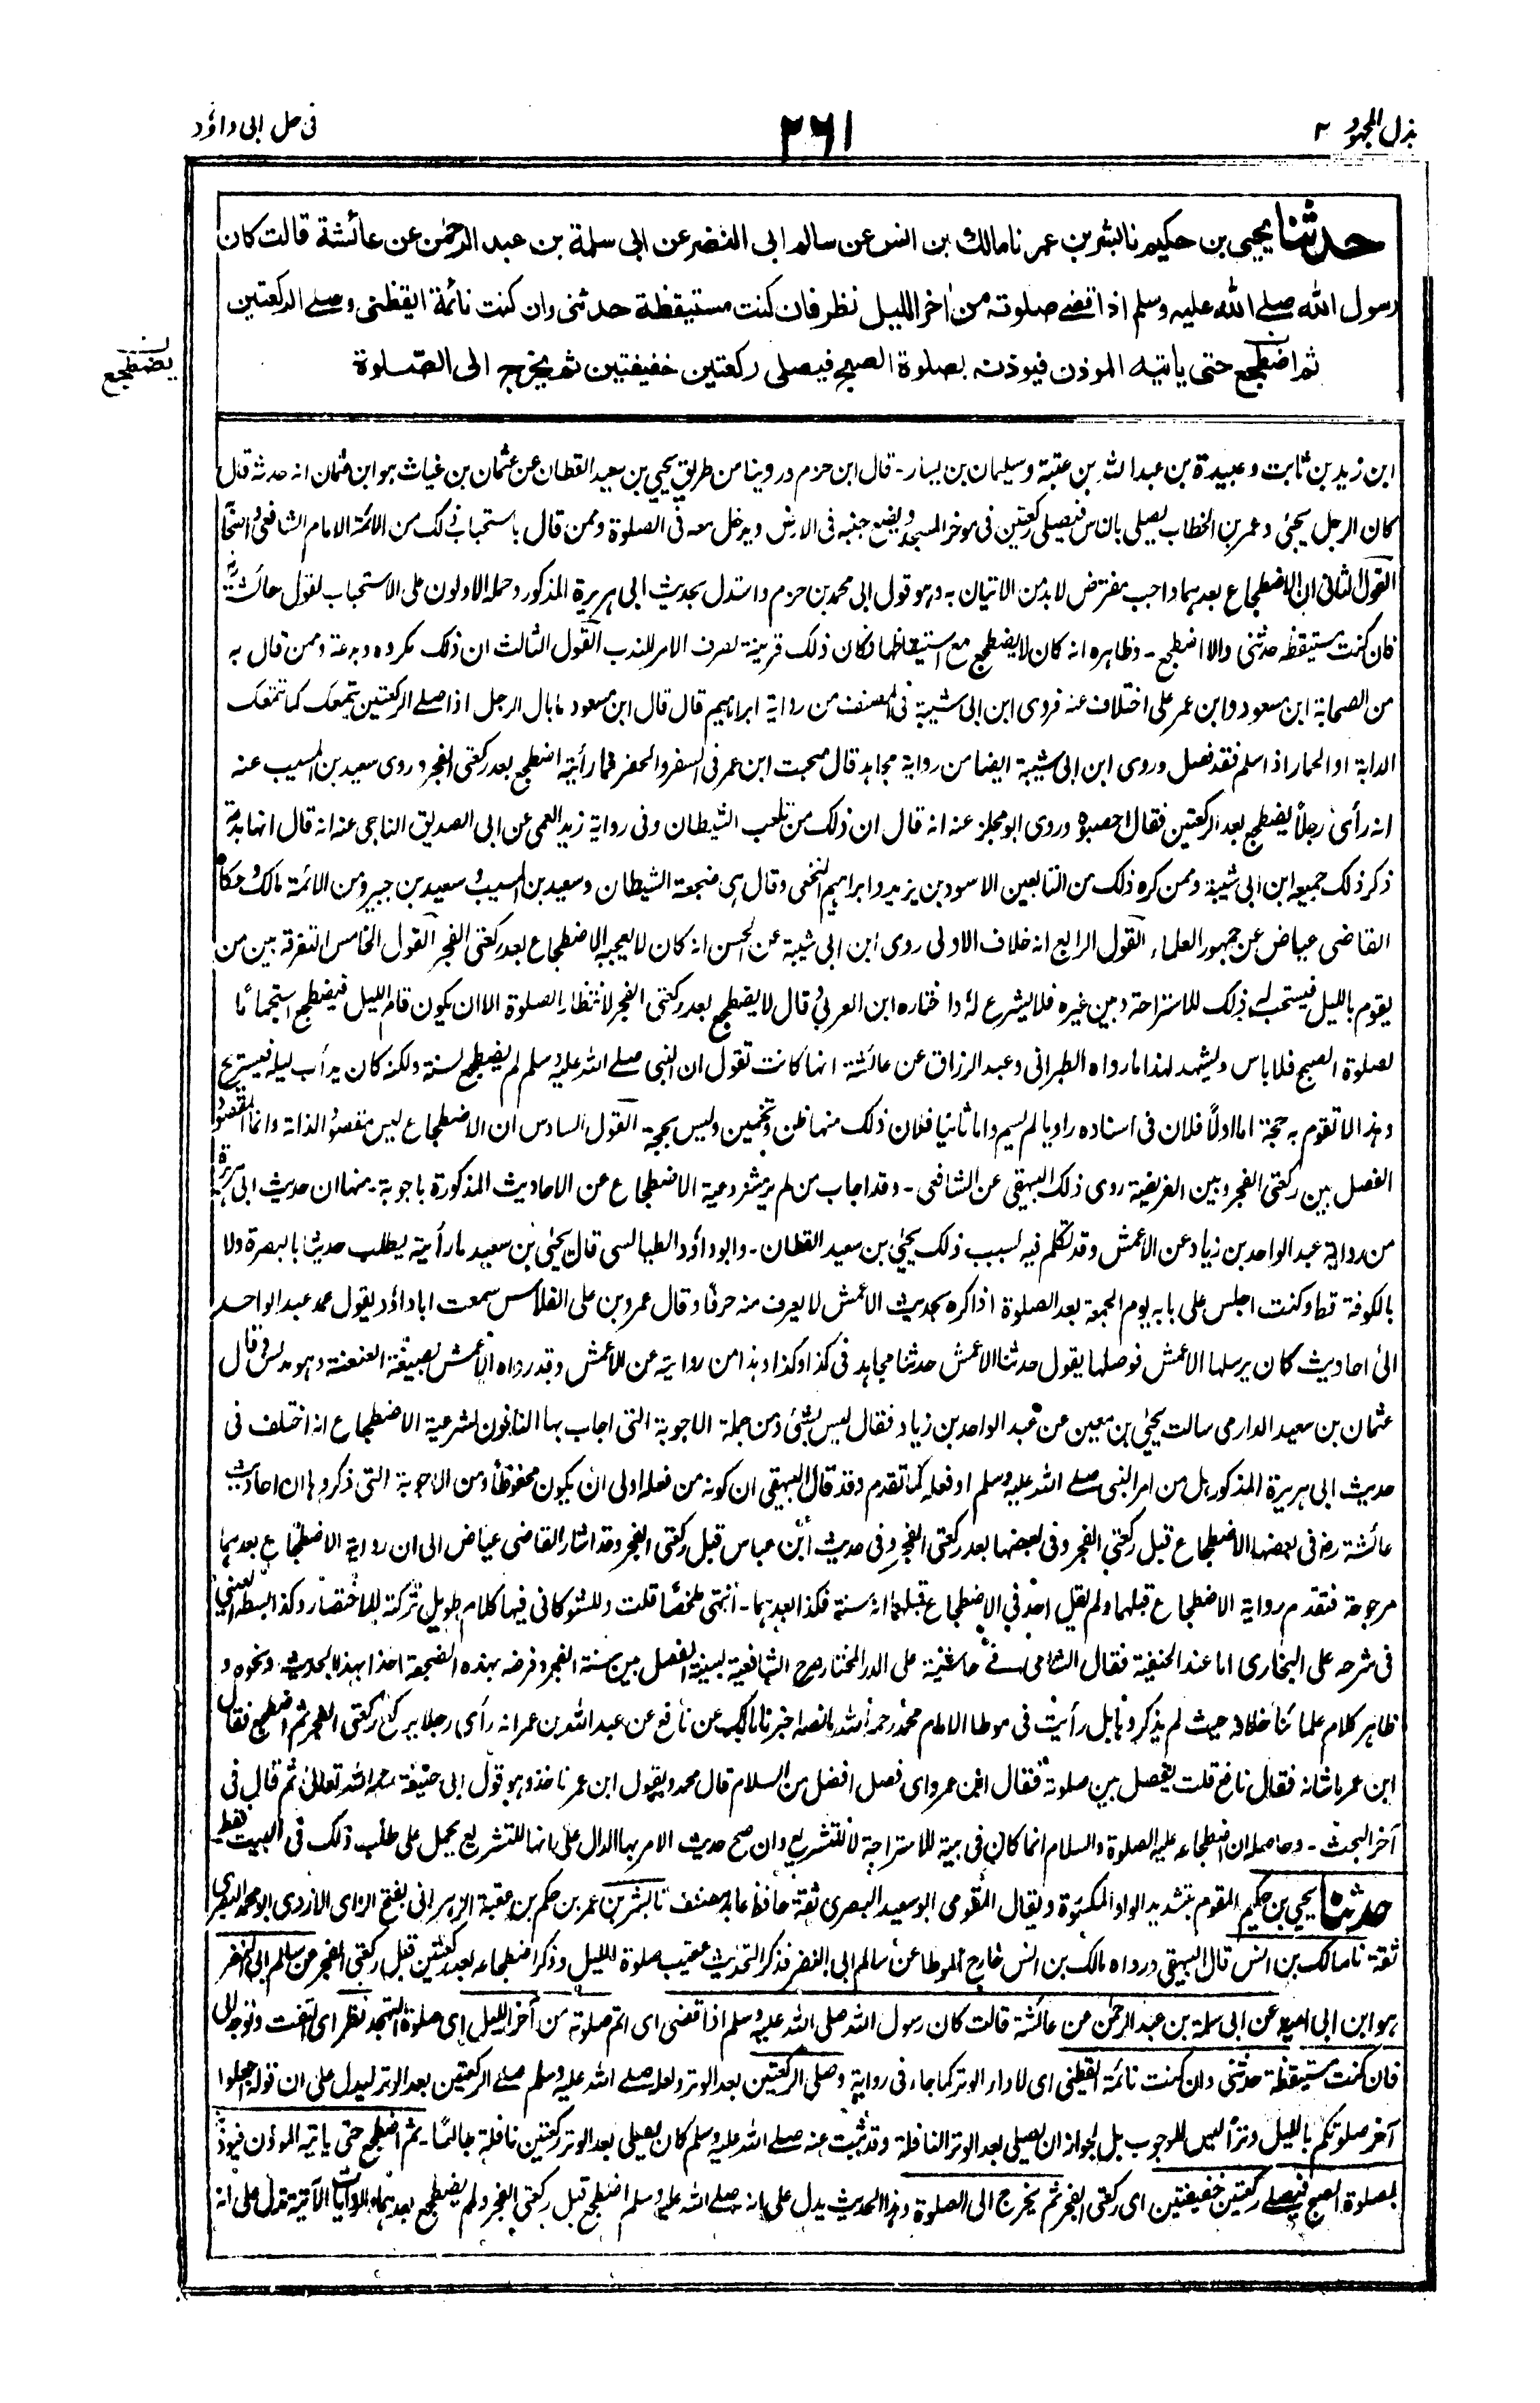 بذل المجهود ٢
٢٦١
فى حل ابى داؤد
حدثنا يحيى بن حكيم نا بشر بن عمر نا مالك بن انس عن سالم ابى النضر عن ابى سلمة بن عبد الرحمٰن عن عائشة قالت كان
رسول الله صلے الله عليه وسلم اذا قضے صلوته من اٰخر الليل نظر فان كنت مستيقظة حدثنى وان كنت نائمة ايقظنى وصلے الركعتين
ثم اضطجع حتى ياتيه الموذن فيوذنه بصلوة الصبح فيصلى ركعتين خفيفتين ثم يخرج الى الصّلوة
يضطجع
ابن زيد بن ثابت وعبيدة بن عبد الله بن عتبة وسليمان بن يسار - قال ابن حزم وروينا من طريق يحيي بن سعيد القطان عن عثمان بن غياث هو ابن عثمان انه حدثه قال
كان الرجل يجئ وعمر بن الخطاب يصلى بالناس فيصلى ركعتين فى موخر المسجد ويضع جنبه فى الارض ويدخل معه فى الصلوة وممن قال باستحباب ذلك من الائمة الامام الشافعى
القول الثانى ان الاضطجاع بعدهما واجب مفترض لا بد من الاتيان به وهو قول ابى محمد بن حزم واستدل بحديث ابى هريرة المذكور وحمله الاولون على الاستحباب لقول عائشة
فان كنت مستيقظة حدثنى والا اضطجع - وظاهره انه كان لا يضطجع مع استيقاظها فكان ذلك قرينة لصرف الامر للندب القول الثالث ان ذلك مكروه وبدعة وممن قال به
من الصحابة ابن مسعود وابن عمر على اختلاف عنه فروى ابن ابى شيبة فى المصنف من رواية ابراهيم قال قال ابن مسعود ما بال الرجل اذا صلے الركعتين يتمعك كما تتمعك
الدابة او الحمار اذا سلم فقد فصل وروى ابن ابى شيبة ايضا من رواية مجاهد قال صحبت ابن عمر فى السفر والحضر فما رأيته اضطجع بعد ركعتى الفجر وروى سعيد بن المسيب عنه
انه رأى رجلاً يضطجع بعد الركعتين فقال احصبوه وروى ابو مجلز عنه انه قال ان ذلك من تلعب الشيطان وفى رواية زيد العمى عن ابى الصديق الناجى عنه انه قال انها بدعة
ذكر ذلك جميعه ابن ابى شيبة وممن كره ذلك من التابعين الاسود بن يزيد وابراهيم النخعى وقال هى ضجعة الشيطان وسعيد بن المسيب وسعيد بن جبير ومن الائمة مالك وحكاه
القاضى عياض عن جمهور العلماء القول الرابع انه خلاف الاولى روى ابن ابى شيبة عن الحسن انه كان لا يعجبه الاضطجاع بعد ركعتى الفجر القول الخامس التفرقة بين من
يقوم بالليل فيستحب له ذلك للاستراحة وبين غيره فلا يشرع له واختاره ابن العربى وقال لا يضطجع بعد ركعتى الفجر لانتظار الصلوة الا ان يكون قام الليل فيضطجع استجماما
لصلوة الصبح فلا باس ويشهد لهذا ما رواه الطبرانى وعبد الرزاق عن عائشة انها كانت تقول ان النبى صلے الله عليه وسلم لم يضطجع لسنة ولكنه كان يدأب ليله فيستريح
وهذا لا تقوم به حجة اما اولاً فلان فى اسناده راويا لم يسم واما ثانيا فلان ذلك منها ظن وتخمين وليس بحجة القول السادس ان الاضطجاع ليس مقصودا لذاته وانما المقصود
الفصل بين ركعتى الفجر وبين الفريضة روى ذلك البيهقى عن الشافعى - وقد اجاب من لم ير مشروعية الاضطجاع عن الاحاديث المذكورة باجوبة - منها ان حديث ابى هريرة
من رواية عبد الواحد بن زياد عن الاعمش وقد تكلم فيه بسبب ذلك يحيٰى بن سعيد القطان - وابو داؤد الطيالسى قال يحيٰى بن سعيد ما رأيته يطلب حديثا بالبصرة ولا
بالكوفة قط وكنت اجلس على بابه يوم الجمعة بعد الصلوة اذاكره بحديث الاعمش لا يعرف منه حرفا وقال عمرو بن على الفلاس سمعت ابا داؤد يقول عمد عبد الواحد
الى احاديث كان يرسلها الاعمش فوصلها يقول حدثنا الاعمش حدثنا مجاهد فى كذا وكذا وهذا من روايته عن الاعمش وقد رواه الاعمش بصيغة العنعنة وهو مدلس وقال
عثمان بن سعيد الدارمى سالت يحيٰى بن معين عن عبد الواحد بن زياد فقال ليس بشئ ومن جملة الاجوبة التى اجاب بها النافون لشرعية الاضطجاع انه اختلف فى
حديث ابى هريرة المذكور هل من امر النبى صلے الله عليه وسلم او فعله كما تقدم وقد قال البيهقى ان كونه من فعله اولى ان يكون محفوظا ومن الاجوبة التى ذكروها ان احاديث
عائشة رض فى بعضها الاضطجاع قبل ركعتى الفجر وفى بعضها بعد ركعتى الفجر وفى حديث ابن عباس قبل ركعتى الفجر وقد اشار القاضى عياض الى ان رواية الاضطجاع بعدهما
مرجوحة فتقدم رواية الاضطجاع قبلهما ولم يقل احد فى الاضطجاع قبلهما انه سنة فكذا بعدهما - انتهى ملخصا قلت وللشوكانى فيها كلام طويل تركته للاختصار وكذا بسطه العينى
فى شرحه على البخارى اما عند الحنفية فقال الشامى فى حاشيته على الدر المختار صرح الشافعية بسنية الفصل بين سنة الفجر وفرضه بهذه الضجعة اخذا بهذا الحديث ونحوه و
ظاهر كلام علمائنا خلافه حيث لم يذكروها بل رأيت فى موطا الامام محمد رحمه الله ما نصه اخبرنا مالك عن نافع عن عبد الله بن عمر انه رأى رجلا يركع ركعتى الفجر ثم اضطجع فقال
ابن عمر ما شانه فقال نافع قلت يفصل بين صلوته فقال ابن عمر واى فصل افضل من السلام قال محمد وبقول ابن عمر ناخذ وهو قول ابى حنيفة رحمه الله تعالىٰ ثم قال فى
آخر البحث - وحاصله ان اضطجاعه عليه الصلوة والسلام انما كان فى بيته للاستراحة لا للتشريع وان صح حديث الامر بها الدال على انها للتشريع يحمل على طلب ذلك فى البيت فقط
حدثنا يحيي بن حكيم المقوم بتشديد الواو المكسورة ويقال المقومى ابو سعيد البصرى ثقة حافظ عابد مصنف نا بشر بن عمر بن حكم بن عقبة الزهرانى بفتح الزاى الازدى ابو محمد البصرى
ثقة نا مالك بن انس قال البيهقى ورواه مالك بن انس خارج الموطا عن سالم ابى النضر فذكر الحديث عقيب صلوة الليل وذكر اضطجاعه بعد ركعتين قبل ركعتى الفجر عن سالم ابى النضر
هو ابن ابى اميه عن ابى سلمة بن عبد الرحمٰن عن عائشة قالت كان رسول الله صلى الله عليه وسلم اذا قضى اى اتم صلوته من آخر الليل اى صلوة التهجد نظر اى التفت وتوجه الى
فان كنت مستيقظة حدثنى وان كنت نائمة ايقظنى اى لاداء الوتر كما جاء فى رواية وصلى الركعتين بعد الوتر ولعله صلے الله عليه وسلم صلے الركعتين بعد الوتر ليدل على ان قوله اجعلوا
آخر صلوتكم بالليل وتراً ليس للوجوب بل لجواز ان يصلى بعد الوتر النافلة وقد ثبت عنه صلے الله عليه وسلم كان يصلى بعد الوتر ركعتين نافلة جالسًا - ثم اضطجع حتى ياتيه الموذن فيوذنه
لصلوة الصبح فيصلے ركعتين خفيفتين اى ركعتى الفجر ثم يخرج الى الصلوة وهذا الحديث يدل على انه صلے الله عليه وسلم اضطجع قبل ركعتى الفجر ولم يضطجع بعدهما والروايات الآتية تدل على انه